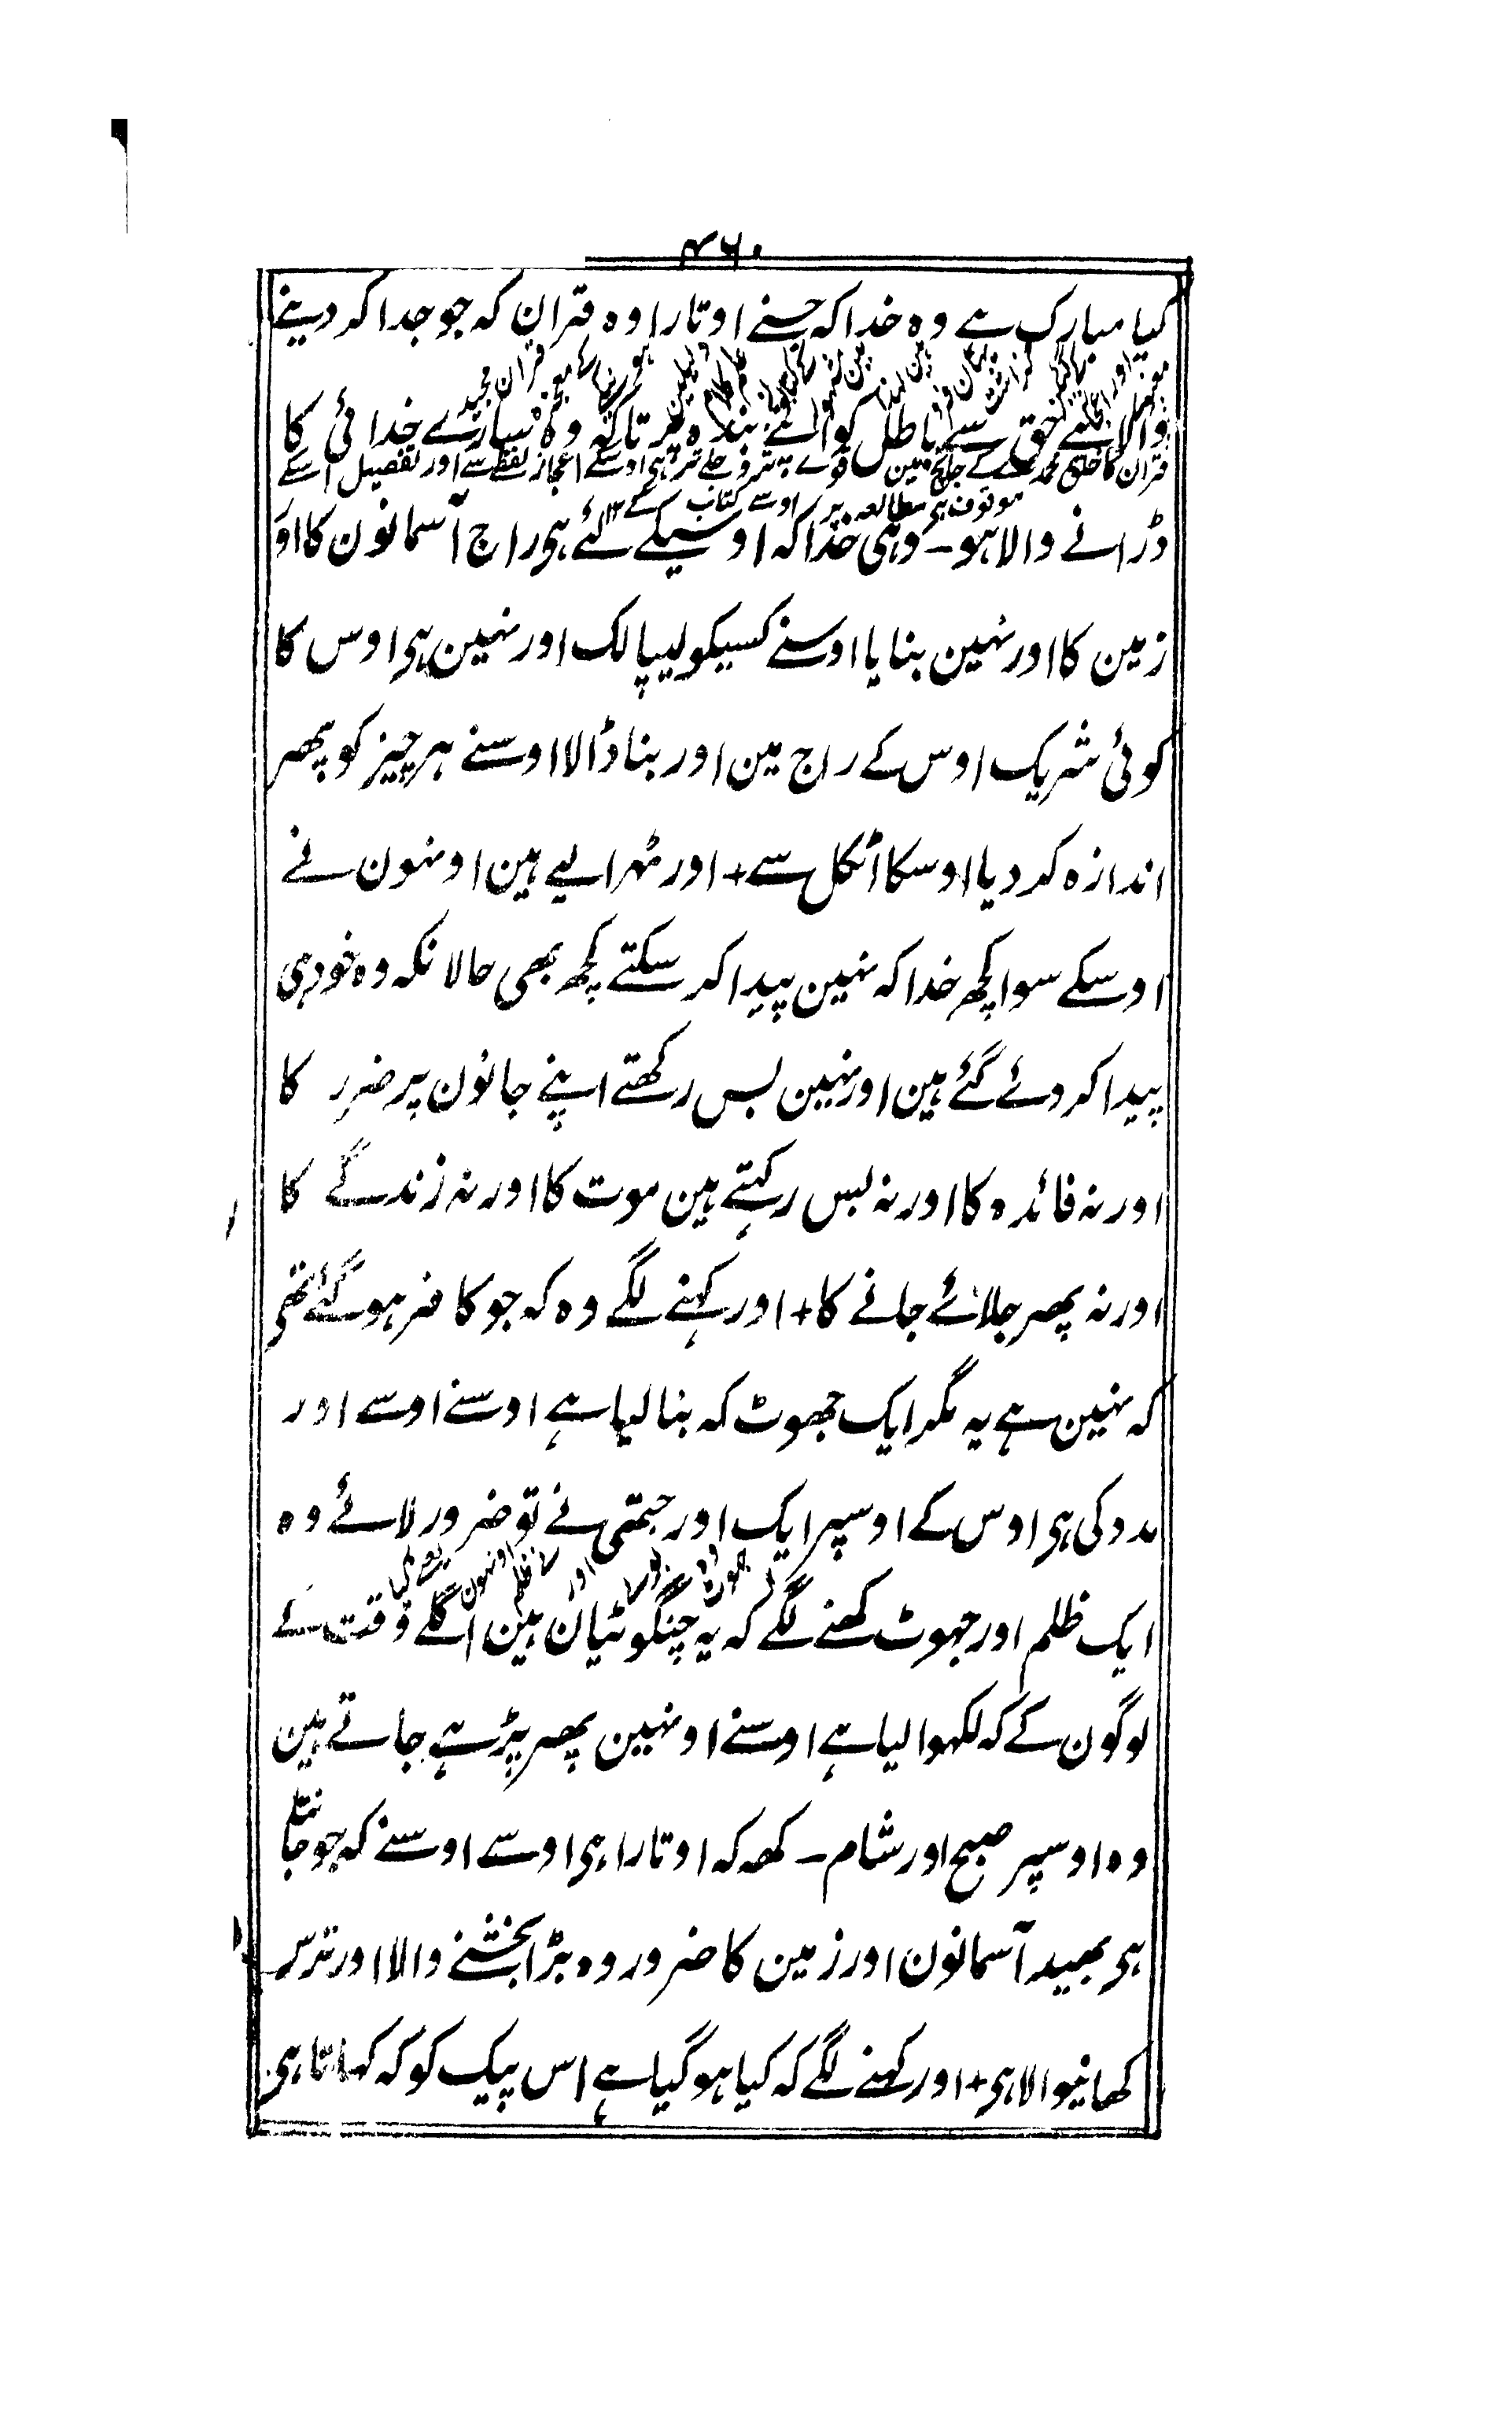 ۴۶۰
کیا مبارک ہے وہ خدا کہ جسنے اوتارا وہ قران کہ جو جدا کر دینے
والا ہے حق سے باطل کو اپنے بندہ پر تاکہ وہ سارے خدائی کا
ڈرانے والا ہو ۔ وہی خدا کہ اوسیکے لئے ہی راج آسمانون کا اور
زمین کا اور نہین بنایا اوسنے کسیکو لیپالک اور نہین ہی اوس کا
کوئی شریک اوس کے راج مین اور بنا ڈالا اوسنے ہر چیز کو پھر
اندازہ کر دیا اوسکا اٹکل سے + اور ٹہرا لیے ہین اونہون نے
اوسکے سوا کچھ خدا کہ نہین پیدا کر سکتے کچھ بھی حالانکہ وہ خود ہی
پیدا کر دئے گئے ہین اور نہین بس رکھتے اپنے جانون پر ضرر کا
اور نہ فائدہ کا اور نہ بس رکہتے ہین موت کا اور نہ زندگے کا
اور نہ پھر جلائے جانے کا + اور کہنے لگے وہ کہ جو کافر ہو گئے تھی
کہ نہین ہے یہ مگر ایک جھوٹ کہ بنا لیا ہے اوسنے اوسے اور
مدد کی ہی اوس کے اوسپر ایک اور جتھی نے تو ضرور لائے وہ
ایک ظلم اور جہوٹ کھنے لگے کہ یہ چنگوٹیان ہین اگلے وقت کے
لوگون کے کہ لکہوا لیا ہے اوسنے اونہین پھر پڑہے جاتے ہین
وہ اوسپر صبح اور شام ۔ کھہ کہ اوتارا ہی اوسے اوسنے کہ جو جانتا
ہی بھید آسمانون اور زمین کا ضرور وہ بڑا بخشنے والا اور ترس
کھانیوالا ہی + اور کہنے لگے کہ کیا ہو گیا ہے اس پیک کو کہ کہاتا ہی